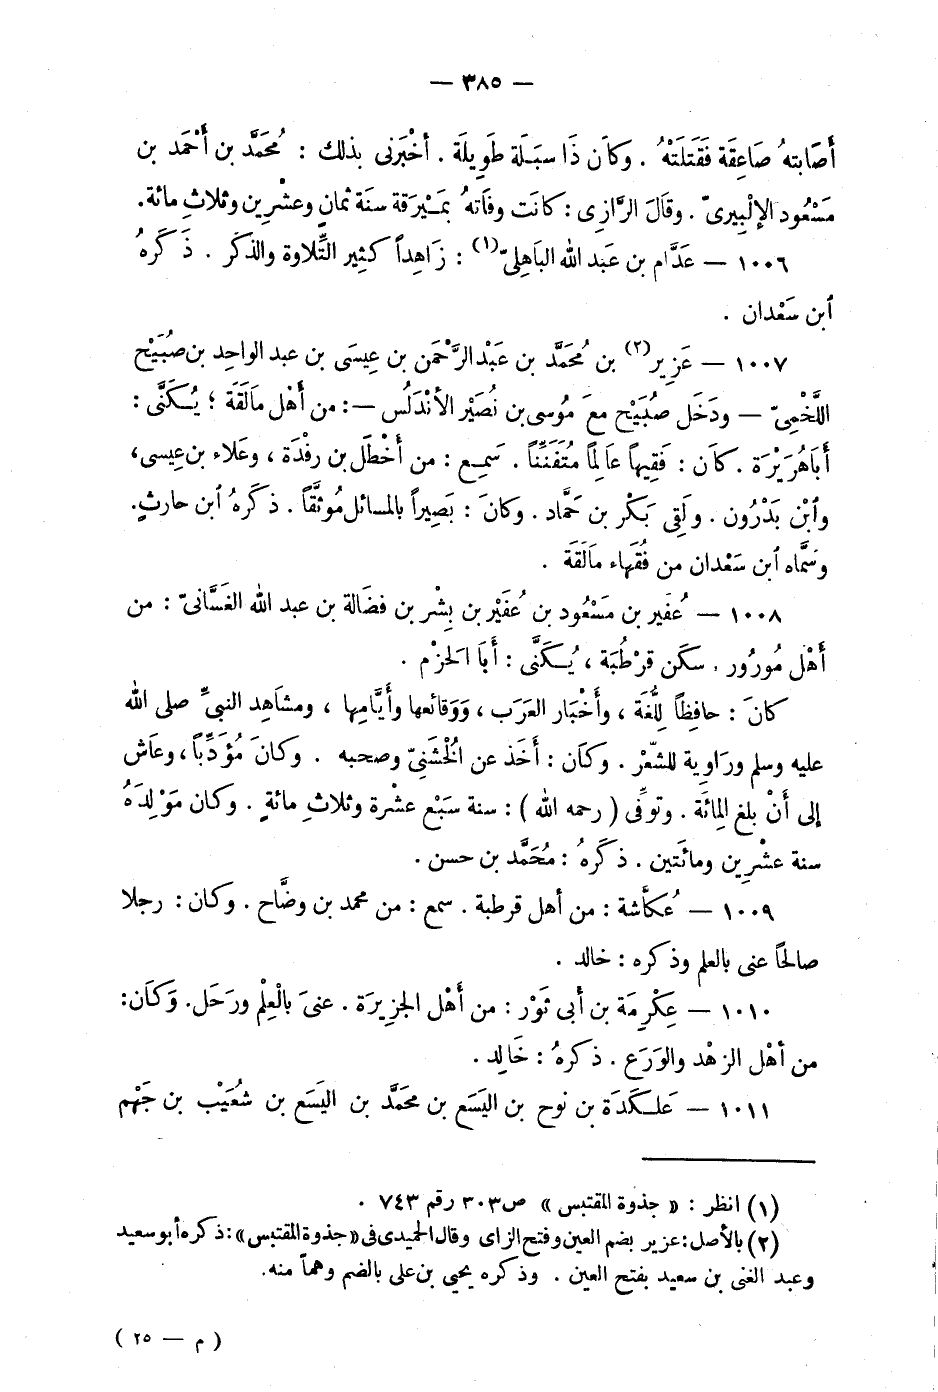 — ٣٨٥ —
أَصَابتهُ صَاعِقَة فَقَتَلَتْهُ . وكاَن ذَا سبَـلَة طَوِيلَة . أخْبَرَنى بذلك : مُحَمَّد بن أَحْمَد بن
مَسْعُود الإلْبِيرىّ . وقَالَ الرَّازِى : كانَت وفَاتهُ بمَـيْرَقة سنَة ثمانٍ وعشْرِين وثَلاثِ مائة.
١٠٠٦ — عَدَّام بن عَبد الله البَاهِلىّ (١) : زَاهِداً كثِير التِّلاوة والذكَر . ذَ كَرهُ
ٱبن سَعْدان .
١٠٠٧ — عَزِير (٢) بن مُحَمَّد بن عَبْد الرَّحْمَن بن عِيسَى بن عبد الواحِد بن صُبَيْح
اللَّخْمِىّ — ودَخَل صُبَيْح معَ مُوسى بن نُصَيْر الأنْدَلُس —: من أَهْل مَالَقَة ؛ يُـكَنَّى :
أَبَا هُرَيْرَة . كاَن : فَقِيهاً عَالِماً مُتَفَنِّناً . سَمِـع : من أَخْطَل بن رفْدَة ، وعَلاء بن عِيسى،
وٱبْن بَدْرُون . ولَقِى بَكْر بن حَمَّاد . وكانَ : بَصِيراً بالمسائل مُوثَّقاً . ذ كَرهُ ٱبن حارثٍ.
وسَمَّاه ٱبن سَعْدان من فُقَهاء مالَقَة .
١٠٠٨ — عُفَير بن مَسْعُود بن عُفَيْر بن بِشْر بن فضَالة بن عبد الله الغَسَّانىّ : من
أَهْل مُورُور . سكَن قرْطُبَة ، يُـكَنَّى : أَبَا الحَزْم .
كانَ : حافِظاً لِلُّغَة ، وأَخْبار العَرَب ، وَوَقائعها وأَيَّامِها ، ومشَاهِد النبىِّ صلى الله
عليه وسلم ورَاوِية للشّعْر . وكاَن : أَخَذ عن الخُشَنِىّ وصحبه . وكانَ مُؤَدِّباً ، وعاَش
إلى أَنْ بلغ المِائَة . وتوفِّى ( رحمه الله ) : سنة سَبْع عشْرة وثلاثِ مائةٍ . وكان مَوْلِدَهُ
سنة عشْرِين ومائَتين . ذ كَرهُ : مُحَمَّد بن حسن .
١٠٠٩ — عُكاَّشة : من أهل قرطبة . سمع : من محمد بن وضَّاح . وكان : رجلا
صالحًا عنى بالعلم وذ كره : خالد .
١٠١٠ — عِكْرِمَة بن أبى ثَوْر : من أَهْل الجَزِيرَة . عنىَ بالْعِلْم ورَحَل . وَكاَن:
من أهْل الزهْد والوَرَع . ذ كرهُ : خَالِد .
١٠١١ — عَلـكَدَة بن نوح بن اليسَع بن محَمَّد بن اليَسَع بن شعُيَبْ بن جَهْم
(١) انظر : « جذوة المقتبس » ص ٣٠٣ رقم ٧٤٣ .
(٢) بالأصل : عزير بضم العين وفتح الزاى وقال الحميدى فى « جذوة المقتبس » : ذكره أبو سعيد
وعبد الغنى بن سعيد بفتح العين . وذ كره يحيى بن على بالضم وهماً منه.
( م — ٢٥ )